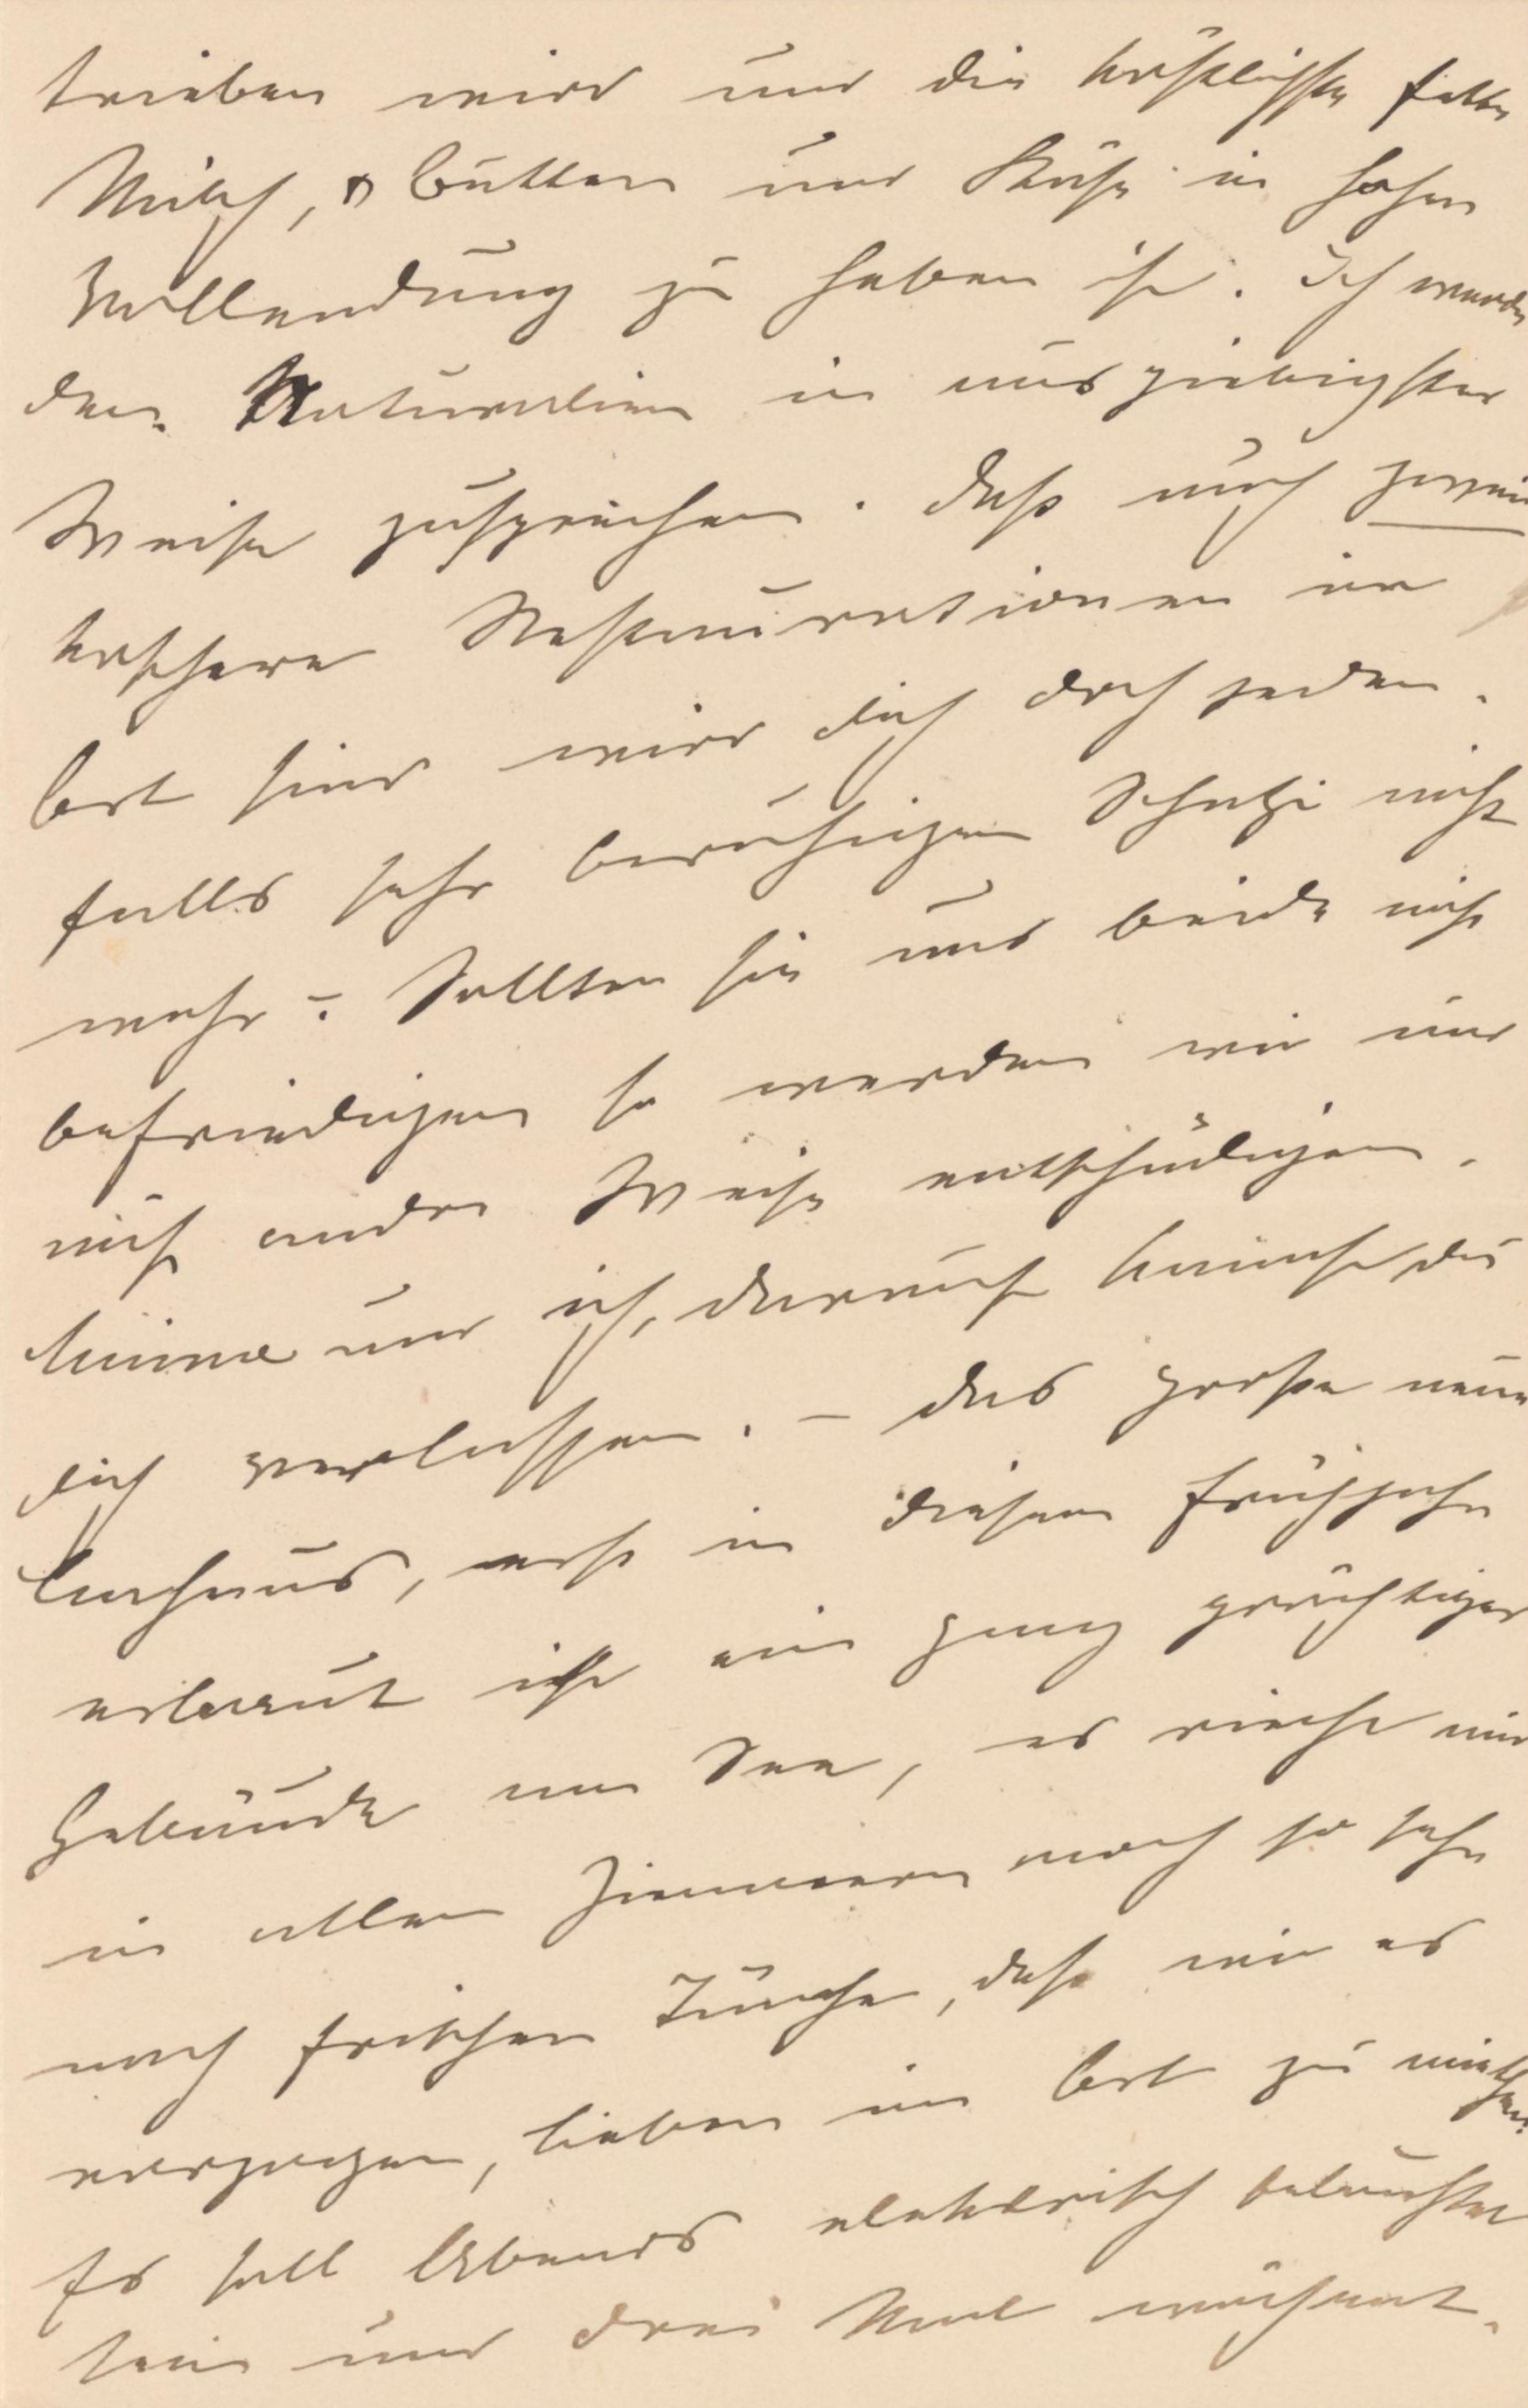 trieben wird und die köstlichste fette
Milch, Butter und Käse in hoher
Vollendung zu haben ist. Ich werde
den Naturalien in ausgiebigster
Weise zusprechen. Daß auch zwei
koschere Restaurationen im
Ort sind wird dich doch jeden-
falls sehr beruhigen Schatzi nicht
wahr? Sollten sie uns beide nicht
befriedigen so werden wir uns
auf andre Weise entschädigen.
Mama und ich, darauf kannst du
dich verlassen. – Das große neue
Curhaus, erst in diesem Frühjahr
erbaut ist ein ganz prächtiges
Gebäude am See, es riecht nur
in allen Zimmern noch so sehr
nach frischer Tünche, daß wir es
vorzogen, lieber im Ort zu miethen.
Es soll Abends elektrisch beleuchtet
sein und drei Mal wöchent-